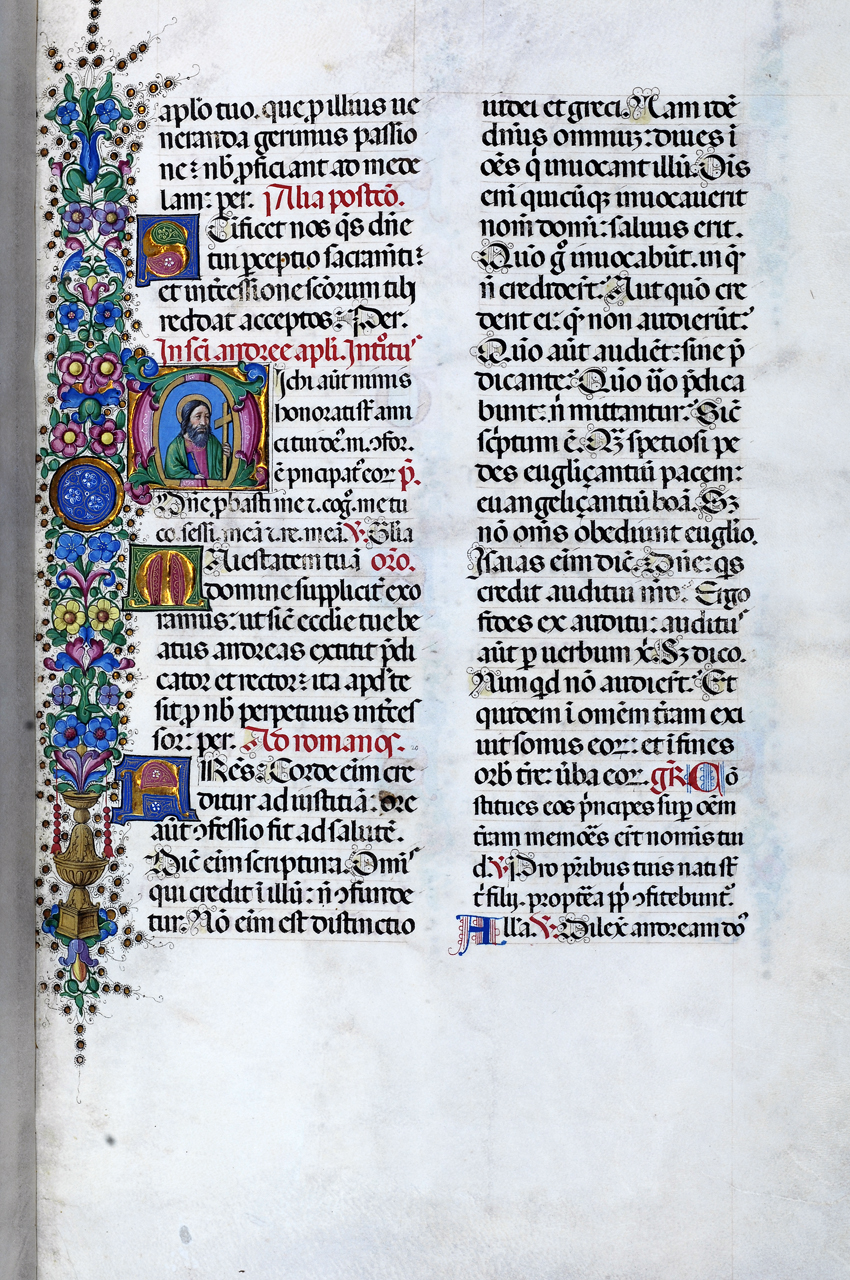 aplo tuo. que p illius ue
neranda gerimus passio
ne: nb̄ pficiant ad mede
lam: per. Alia postcō.
Stificet nos qs dn̄e
tui pceptio sacramti:
et intcessione scōrum tibi
reddat acceptos: Per.
In sc̄i andree apli. Introtus
Michi aūt nimis
honorati sr̄ ami
ci tui de. m. ɔfor.
ē pncipat' eor p̄.
Dn̄e pbasti me z. cog. me tu
co. sessi. meā z. re. meā. V. Glia
Maiestatem tuā oro.
domine supplicit exo
ramus: ut sic ecclie tue be
atus andreas extitit p̄di
cator et rector: ita apd te
sit p nb̄ perpetuus intces
sor: per. Ad romanos.
FRēs: Corde eim cre
ditur ad iustitiā: ore
aūt ɔfessio fit ad salutē.
Dic eim scriptura. Omis
qui credit ī illū: n̄ ɔfunde
tur. Nō eim est distinctio
iudei et greci. Nam idē
dn̄us omniuz: diues ī
oēs q̄ inuocant illū. Ōis
enī quicūqz inuocauerit
nom̄ domī: saluus erit.
Quō g̊ inuocabūt. in q̄
n̄ crediderīt. Aut quō cre
dent ei: q̄ non audierūt:
Quō aūt audiēt: sine p̄
dicante: Quō ūo p̄dica
bunt: n̄ mittantur: Sic
sc̄ptum ē. Q̄z spetiosi pe
des eugliçantiū pacem:
euangeliçantiū boā. Sz
nō om̄s obediunt euglio.
Isaias eim dic̄. Dn̄e: qs
credit auditui nr̄o: Ergo
fides ex auditu: auditus
aūt p uerbum x̄. Sz dico.
Nunqd nō audierīt. Et
quidem ī omēm tr̄am exi
uit sonus eor: et ī fines
orb tr̄e: ūba eor. gR. Cō
stitues eos p̄ncipes sup oēm
tr̄am memoēs erīt nomīs tui
d. V. Pro pr̄ibus tuis nati sr̄
t' filij. proptēa pp̄ ɔfitebunt'.
Alla. V. Dilex andream do